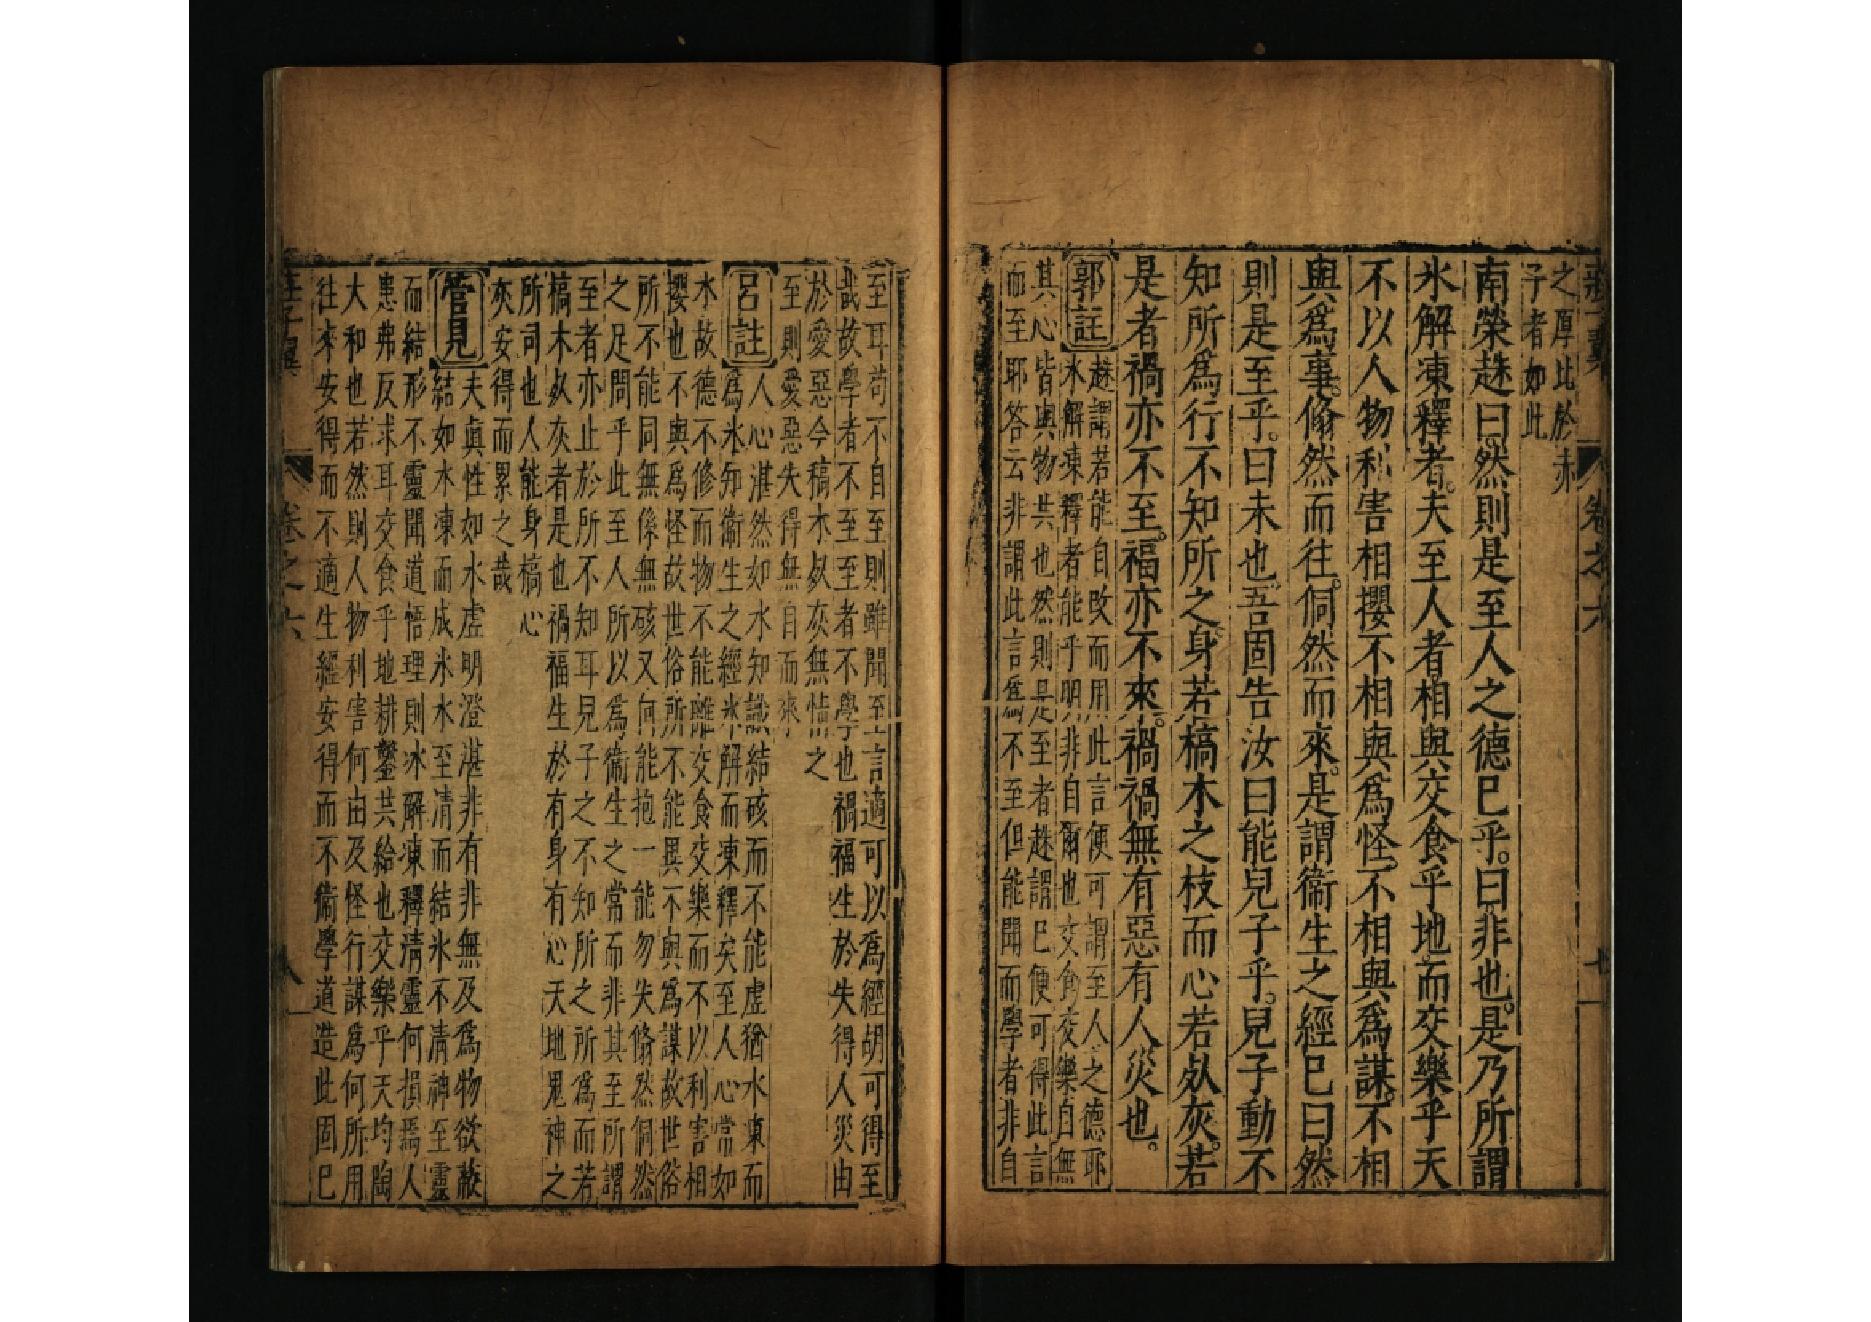 之厚比於赤
子者如此
南榮趎曰然則是至人之德已乎。曰非也。是乃所謂
氷解凍釋者。夫至人者相與交食乎地。而交樂乎天
不以人物利害相攖不相與爲怪。不相與爲謀。不相
與爲事。翛然而往。侗然而來。是謂衞生之經已曰然
則是至乎。曰未也。吾固告汝曰能兒子乎。兒子動不
知所爲行不知所之。身若槁木之枝而心若死灰。若
是者禍亦不至。福亦不來。禍禍無有惡有人災也。
郭註 趎謂若能自改而用此言便可謂至人之德耶
氷解凍釋者能乎明非自爾也交食交樂自無
其心皆與物共也然則是至者趎謂已便可得此言
而至耶答云非謂此言爲不至但能聞而學者非自
至耳苟不自至則雖聞至言適可以爲經胡可得至
哉故學者不至至者不學也禍福生於失得人災由
於愛惡今稿木死灰無情之
至則愛惡失得無自而來
呂註 人心湛然如水知識結硋而不能虛猶水凍而
爲氷知衞生之經氷解而凍釋矣至人心常如
水故德不修而物不能離交食交樂而不以利害相
攖也不與爲怪故世俗所不能異不與爲謀故世俗
所不能同無係無硋又何能抱一能勿失翛然侗然
之足問乎此至人所以爲衞生之常而非其至所謂
至者亦止於所不知耳兒子之不知所之所爲而若
槁木死灰者是也禍福生於有身有心天地鬼神之
所司也人能身槁心
灰安得而累之哉
管見 夫眞性如水虛明澄湛非有非無及爲物欲蔽
結如水凍而成氷水至清而結氷不清神至靈
而結形不靈聞道悟理則氷解凍釋清靈何損焉人
患弗反求耳交食乎地耕鑿共給也交樂乎天均陶
大和也若然則人物利害何由及怪行謀爲何所用
往來安得而不適生經安得而不衞學道造此固已
莊子翼 卷之六